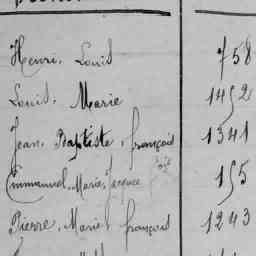 Henri, Louis 758
Louis, Marie 1452
Jean, Baptiste, françois 1341
Emmanuel, Marie, Jacques 155
Pierre, Marie, françois 1243